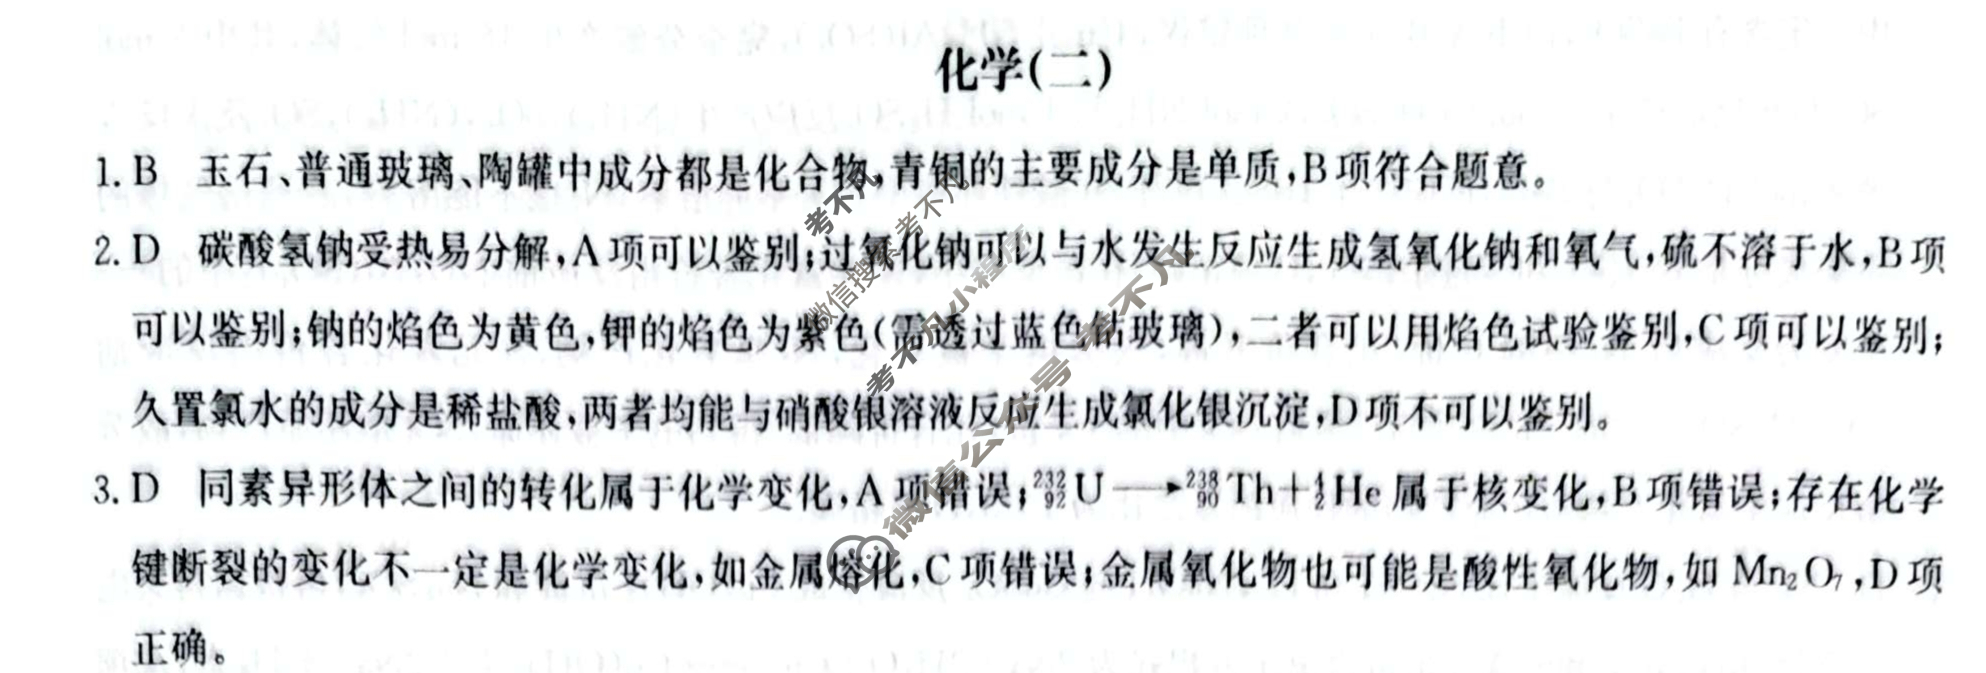 化学(二)
1. B 玉石、普通玻璃、陶罐中成分都是化合物,青铜的主要成分是单质,B项符合题意。
2. D 碳酸氢钠受热易分解,A项可以鉴别;过氧化钠可以与水发生反应生成氢氧化钠和氧气,硫不溶于水,B项
可以鉴别;钠的焰色为黄色,钾的焰色为紫色(需透过蓝色钴玻璃),二者可以用焰色试验鉴别,C项可以鉴别;
久置氯水的成分是稀盐酸,两者均能与硝酸银溶液反应生成氯化银沉淀,D项不可以鉴别。
3. D 同素异形体之间的转化属于化学变化,A项错误;²³²₉₂U⟶²³⁸₉₀Th+⁴₂He属于核变化,B项错误;存在化学
键断裂的变化不一定是化学变化,如金属熔化,C项错误;金属氧化物也可能是酸性氧化物,如Mn₂O₇,D项
正确。
考不凡
微信搜索 考不凡
考不凡小程序
微信公众号 考不凡